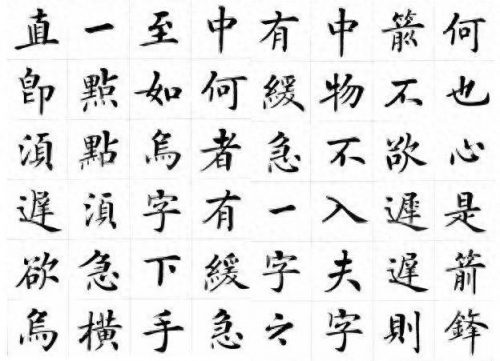 何也心是箭鋒
箭不欲遲遲則
中物不入夫字
有緩急一字之
中何者有緩急
至如烏字下手
一點點湏急橫
直即湏遲欲烏